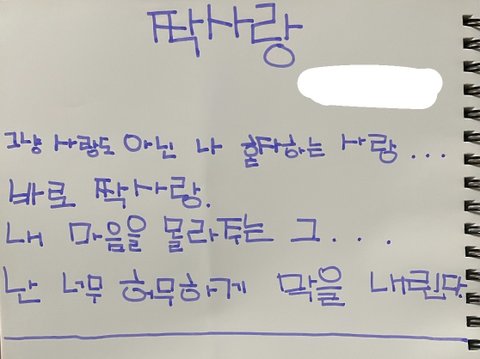 짝사랑
그냥 사랑도 아닌 나 홀자하는 사랑...
바로 짝사랑.
내 마음을 몰라두는 그...
난 너무 허무하게 막을 내린다.